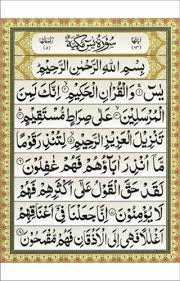 سُوْرَةُ يٰسٓ مَكِّيَّةٌ
بِسْمِ اللّٰهِ الرَّحْمٰنِ الرَّحِيْمِ
يٰسٓ ۚ وَالْقُرْاٰنِ الْحَكِيْمِ ۙ اِنَّكَ لَمِنَ
الْمُرْسَلِيْنَ ۙ عَلٰى صِرَاطٍ مُّسْتَقِيْمٍ ۙ
تَنْزِيْلَ الْعَزِيْزِ الرَّحِيْمِ ۙ لِتُنْذِرَ قَوْمًا
مَّاۤ اُنْذِرَ اٰبَآؤُهُمْ فَهُمْ غٰفِلُوْنَ
لَقَدْ حَقَّ الْقَوْلُ عَلٰۤى اَكْثَرِهِمْ فَهُمْ
لَا يُؤْمِنُوْنَ اِنَّا جَعَلْنَا فِيْۤ اَعْنَاقِهِمْ
اَغْلٰلًا فَهِيَ اِلَى الْاَذْقَانِ فَهُمْ مُّقْمَحُوْنَ